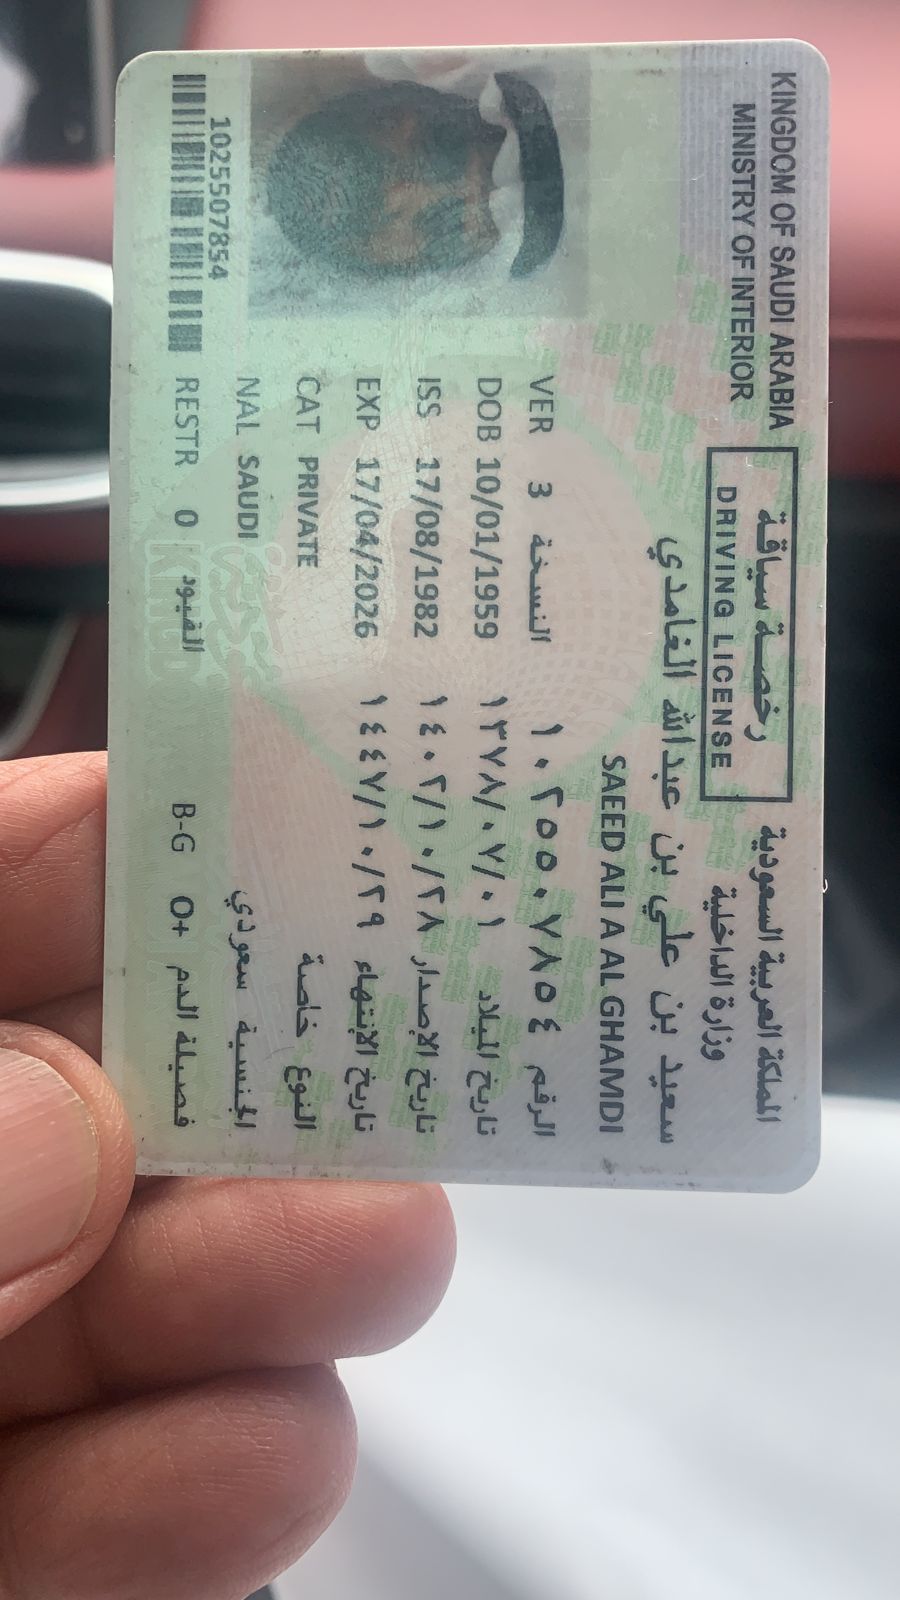 KINGDOM OF SAUDI ARABIA
MINISTRY OF INTERIOR
رخصة سياقة
DRIVING LICENSE
المملكة العربية السعودية
وزارة الداخلية
سعيد بن علي بن عبدالله الغامدي
SAEED ALI A AL GHAMDI
VER 3 النسخة ١٠٢٥٥٠٧٨٥٤ الرقم
DOB 10/01/1959 ١٣٧٨/٠٧/٠١ تاريخ الميلاد
ISS 17/08/1982 ١٤٠٢/١٠/٢٨ تاريخ الإصدار
EXP 17/04/2026 ١٤٤٧/١٠/٢٩ تاريخ الإنتهاء
CAT PRIVATE النوع خاصة
NAL SAUDI الجنسية سعودي
RESTR 0 القيود B-G O+ فصيلة الدم
1025507854